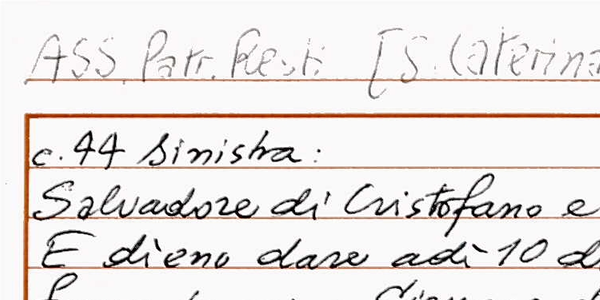 ASS. Patr. Resti [S. Caterina
c. 44 sinistra:
Salvadore di Cristofano e
E dieno dare adì 10 d